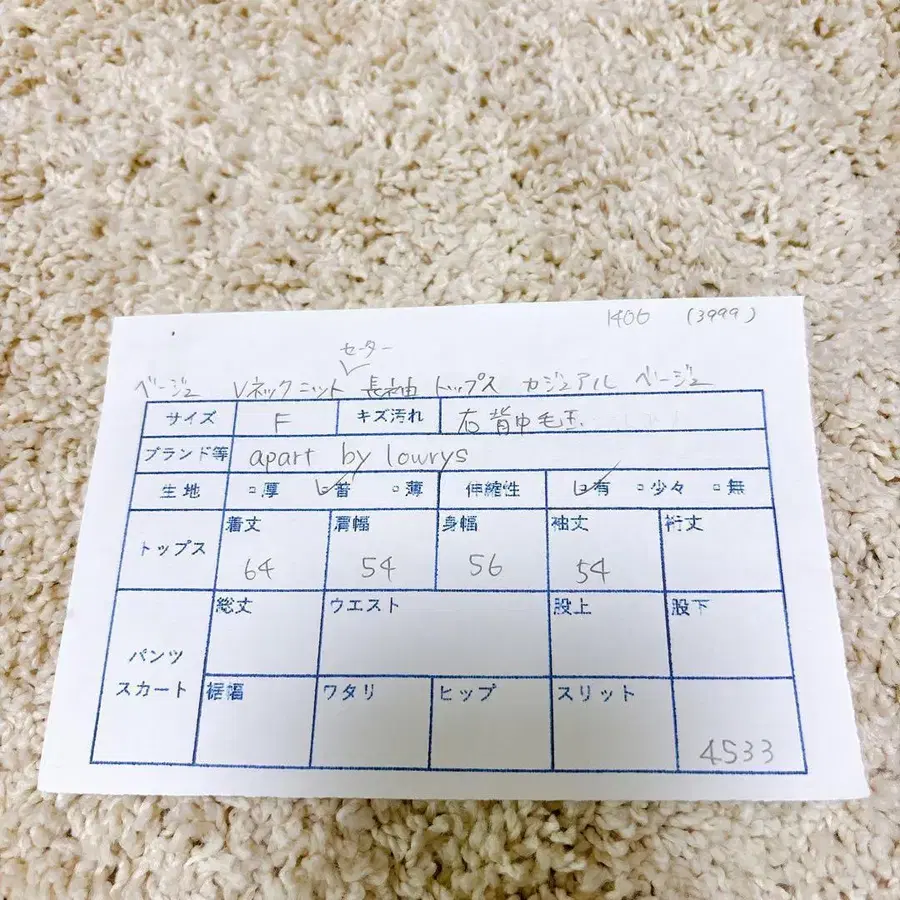 1406 (3999)
セーター
ベージュ Vネックニット 長袖 トップス カジュアル ベージュ
サイズ F キズ汚れ 右背中毛玉
ブランド等 apart by lowrys
生地 厚 普 薄 伸縮性 有 少々 無
着丈 肩幅 身幅 袖丈 裄丈
トップス 64 54 56 54
総丈 ウエスト 股上 股下
パンツ
スカート
裾幅 ワタリ ヒップ スリット
4533